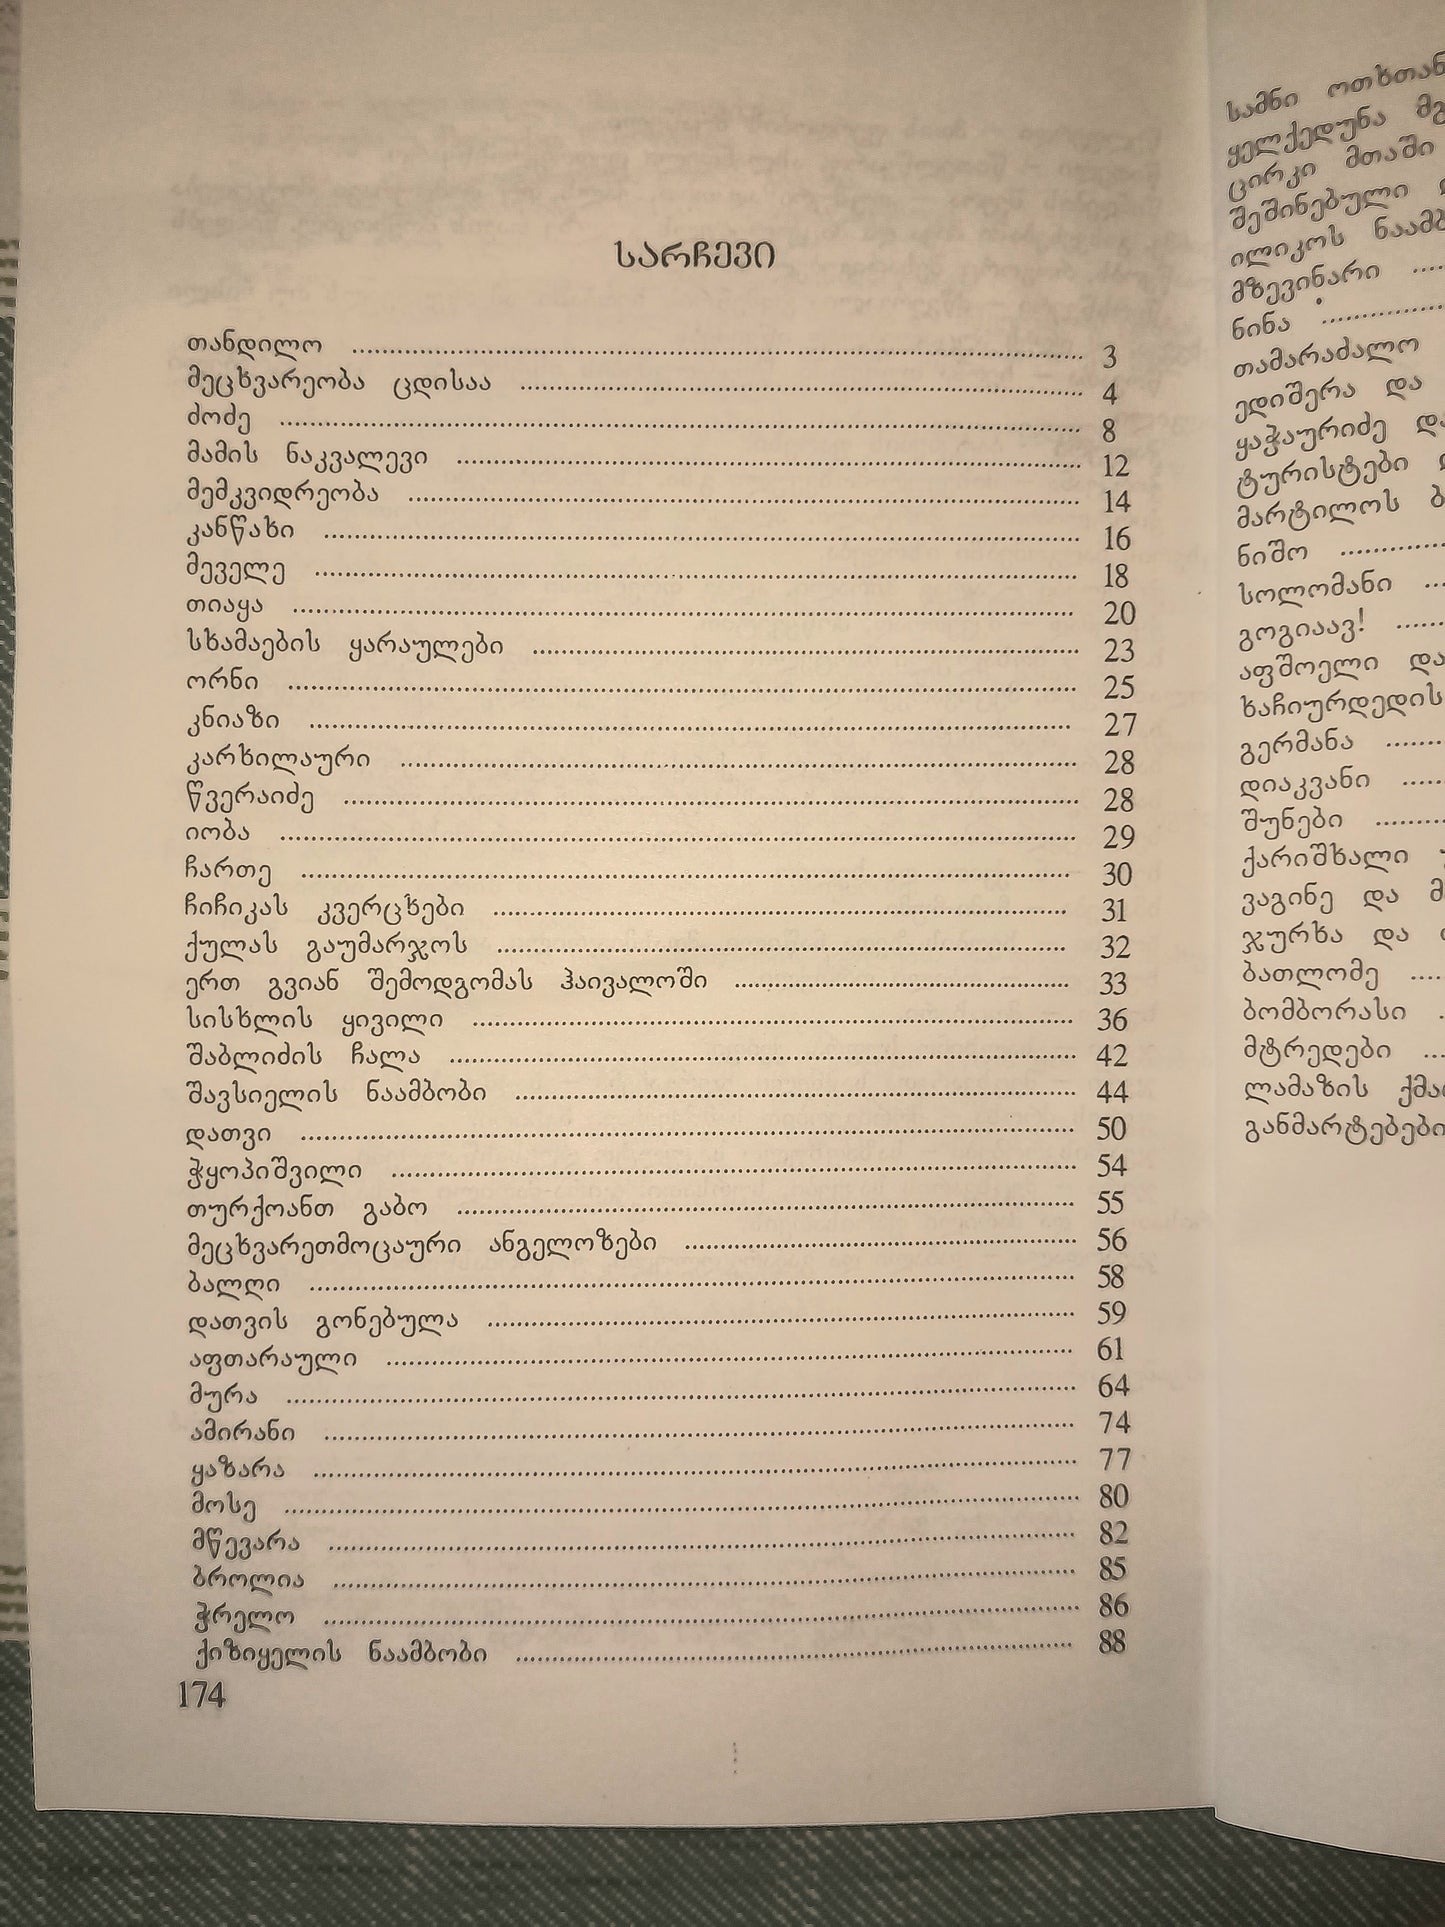 სარჩევი
თანდილო ........ 3
მეცხვარეობა ცდისაა ........ 4
ძოძე ........ 8
მამის ნაკვალევი ........ 12
მემკვიდრეობა ........ 14
კანწახი ........ 16
მეველე ........ 18
თიაყა ........ 20
სხამაების ყარაულები ........ 23
ორნი ........ 25
კნიაზი ........ 27
კარხილაური ........ 28
წვერაიძე ........ 28
იობა ........ 29
ჩართე ........ 30
ჩიჩიკას კვერცხები ........ 31
ქულას გაუმარჯოს ........ 32
ერთ გვიან შემოდგომას ჰაივალოში ........ 33
სისხლის ყივილი ........ 36
შაბლიძის ჩალა ........ 42
შავსიელის ნაამბობი ........ 44
დათვი ........ 50
ჭყოპიშვილი ........ 54
თურქოანთ გაბო ........ 55
მეცხვარეთმოცაური ანგელოზები ........ 56
ბალღი ........ 58
დათვის გონებულა ........ 59
აფთარაული ........ 61
მურა ........ 64
ამირანი ........ 74
ყაზარა ........ 77
მოსე ........ 80
მწევარა ........ 82
ბროლია ........ 85
ჭრელო ........ 86
ქიზიყელის ნაამბობი ........ 88
174
სამნი ოთხთან
ყელქედუნა
ცირკი მთაში
შეშინებული
ილიკოს
მზევინარი ....
ნინა ........
თამარაძალო
ედიშერა და
ყაჭაურიძე
ტურისტები
მარტილოს
ნიშო ........
სოლომანი ...
გოგიაავ! ......
აფშოელი და
ხაჩიურდედის
გერმანა ......
დიაკვანი ....
შუნები .......
ქარიშხალი
ვაგინე და
ჯურხა და
ბათლომე ....
ბომბორასი
მტრედები ...
ლამაზის
განმარტებები